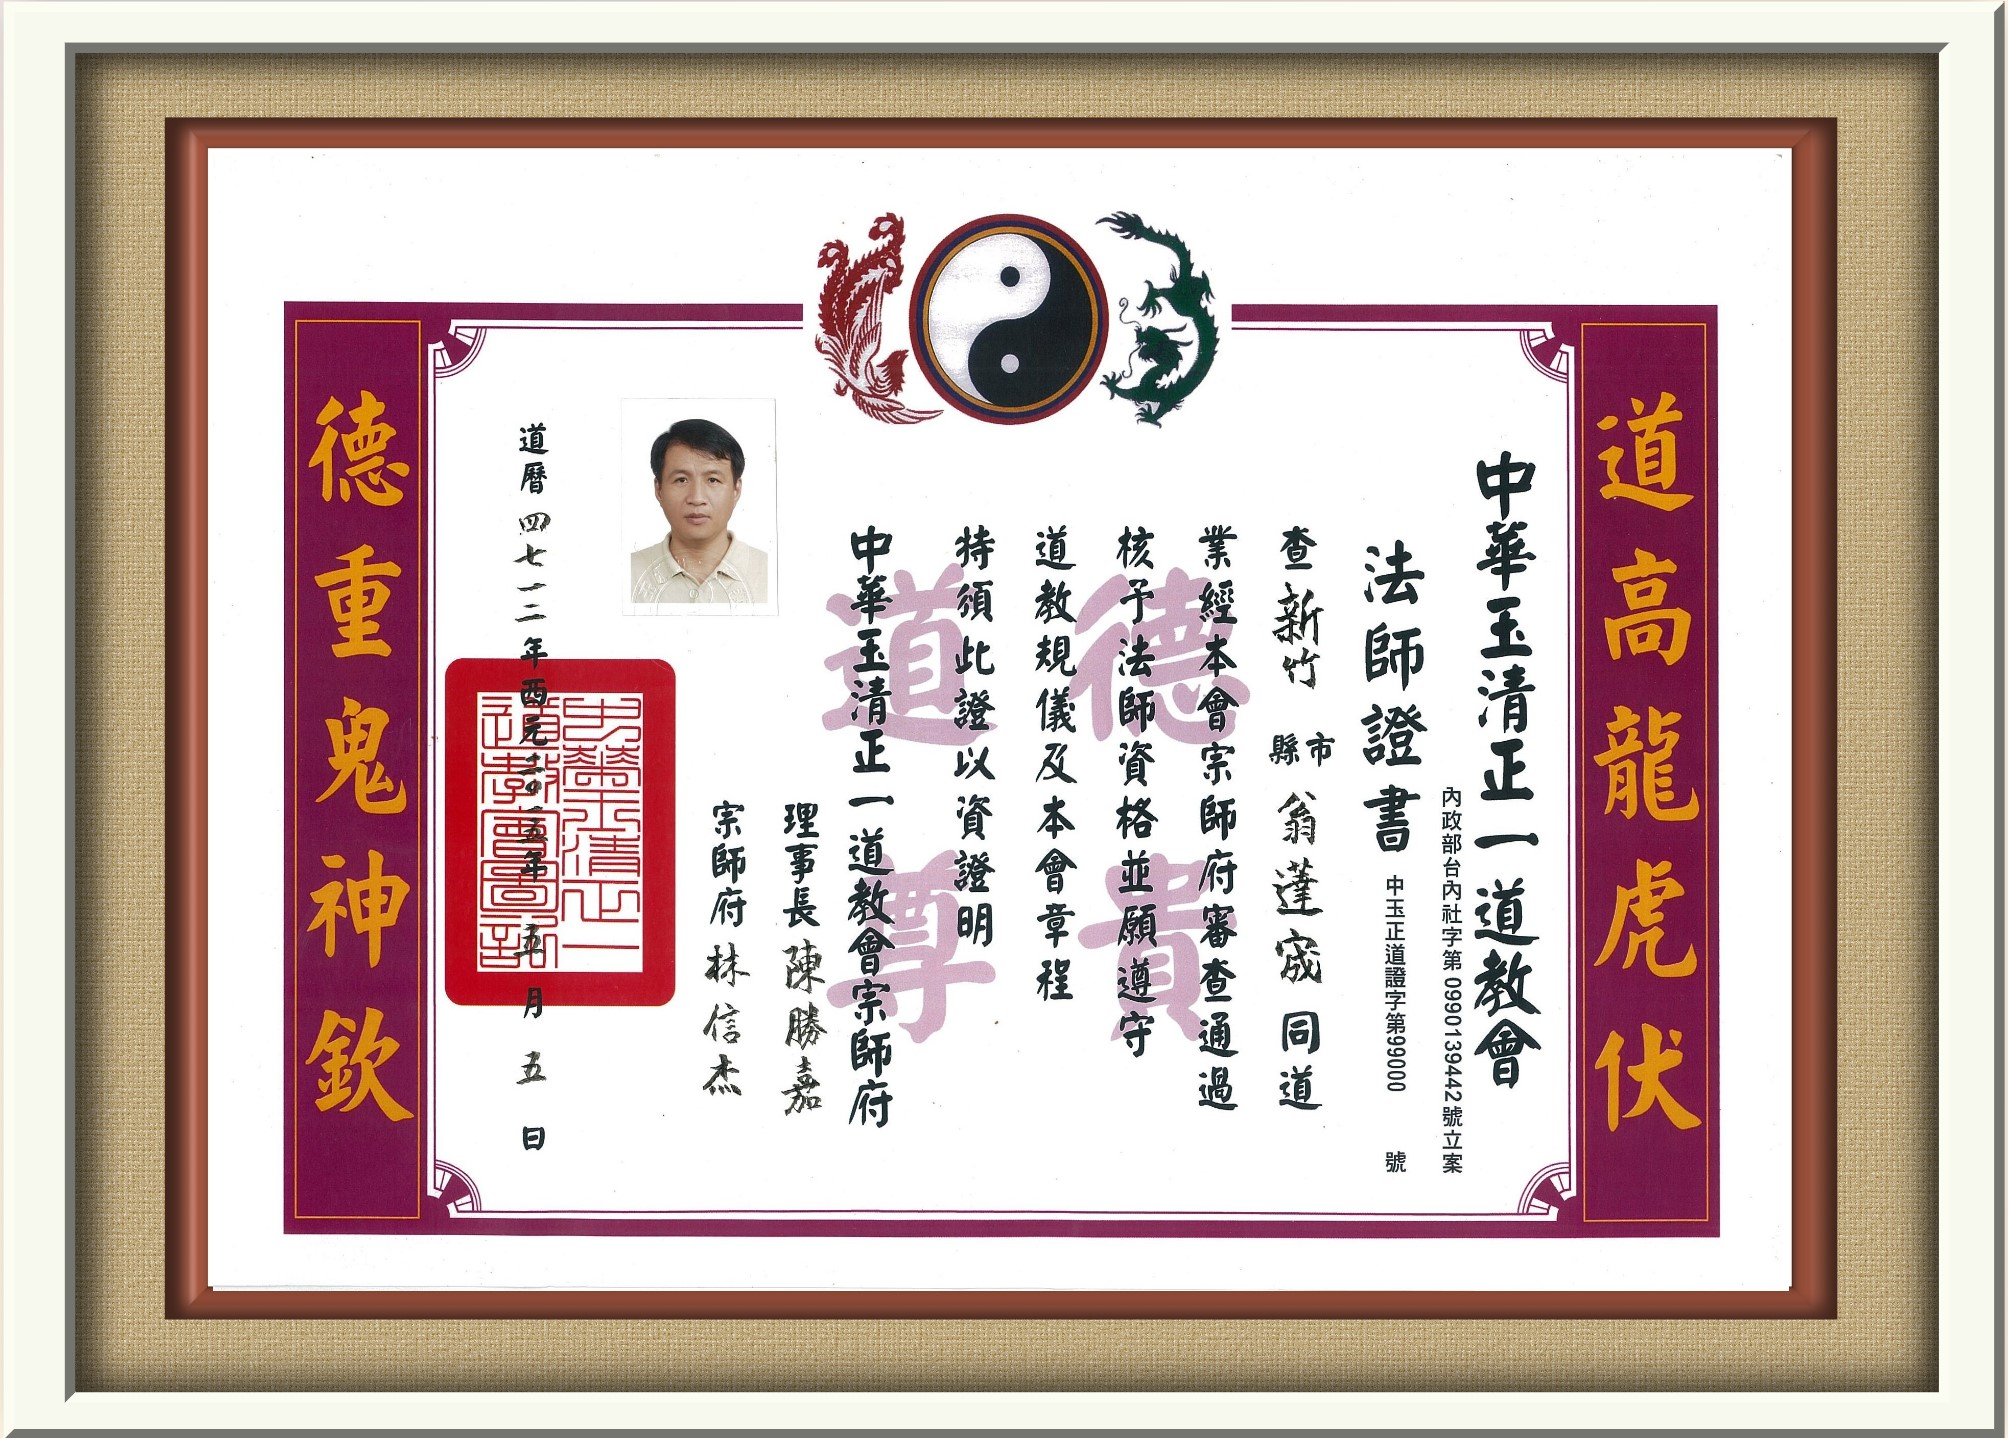 道高龍虎伏
中華玉清正一道教會
內政部台內社字第0990139442號立案
法師證書 中玉正道證字第99000 號
查新竹 縣市 翁蓬宬 同道
業經本會宗師府審查通過
核予法師資格並願遵守
道教規儀及本會章程
持須此證以資證明
中華玉清正一道教會宗師府
理事長 陳勝嘉
宗師府 林信杰
道曆四七一二年西元二〇一五年五月五日
德重鬼神欽
道德尊貴